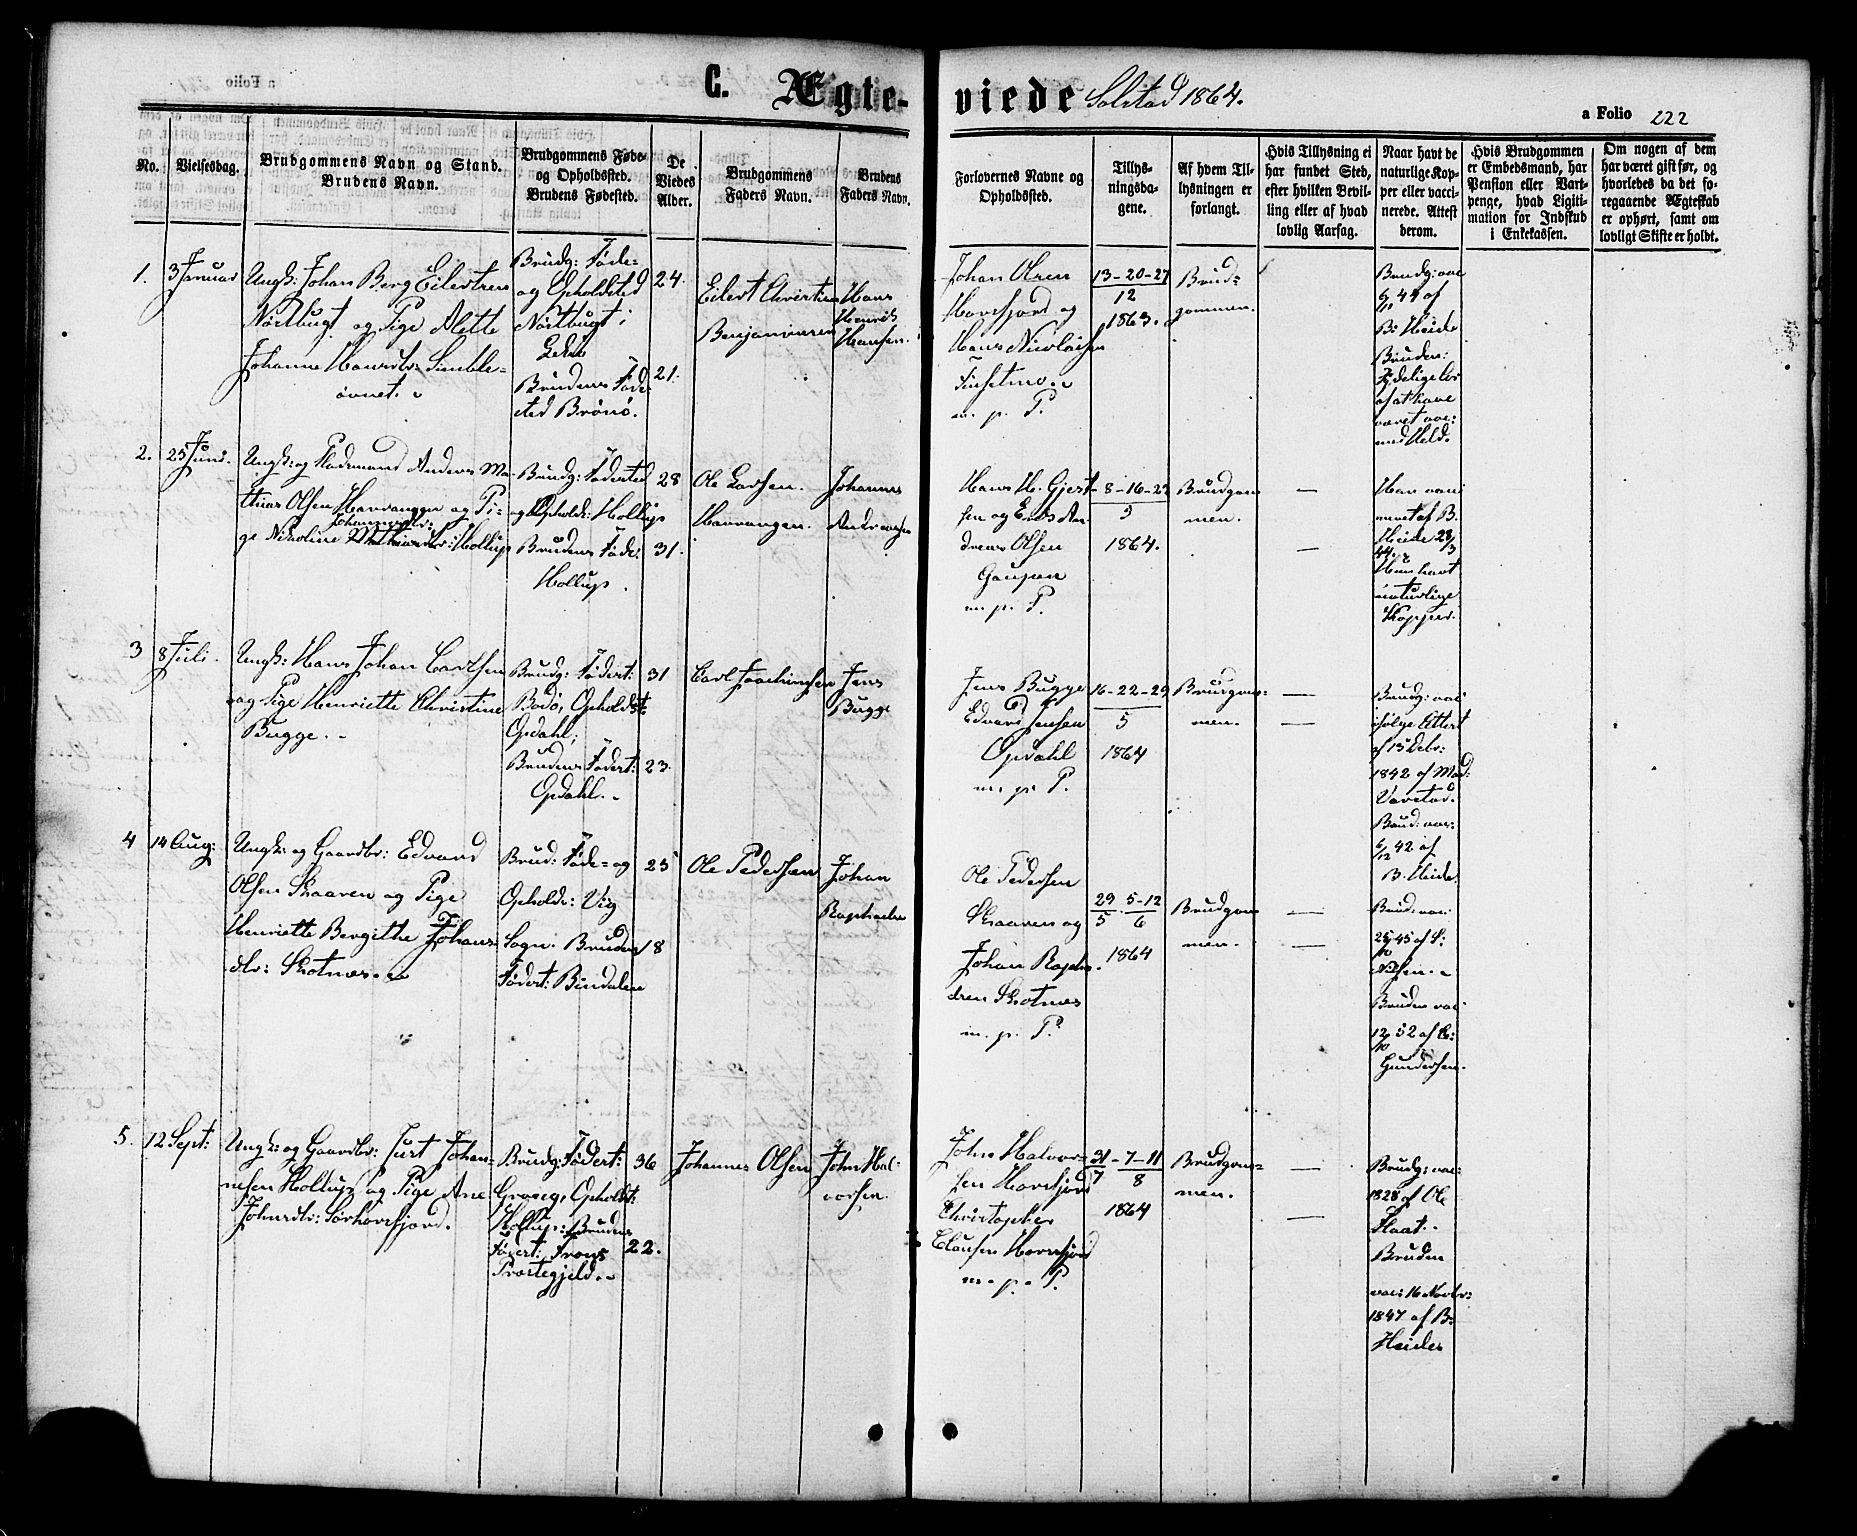 C. Ægte-
viede Solstad 1864.
a Folio 222
No.
Vielsesdag.
Brudgommens Navn og Stand.
Brudens Navn.
Brudgommens Føde-
og Opholdssted.
Brudens Fødested.
De
Viedes
Alder.
Brudgommens
Faders Navn.
Brudens
Faders Navn.
Forlovernes Navne og
Opholdssted.
Tillys-
ningsda-
gene.
Af hvem Til-
lysningen er
forlangt.
Hvis Tillysning ei
har fundet Sted,
efter hvilken Bevil-
ling eller af hvad
lovlig Aarsag.
Naar havt de
naturlige Kop-
per eller vacci-
nerede. Attest
derom.
Hvis Brudgommen
er Embedsmand, har
Pension eller Vart-
penge, hvad Ligiti-
mation for Indskud
i Enkekassen.
Om nogen af dem
har været gift før, og
hvorledes da det fo-
regaaende Ægteskab
er ophørt, samt om
lovligt Skifte er holdt.
1.
3 Januar
Ungk: Johan Berg Eilertsen
Nordbugt og Pige Alette
Johanne Hansdtr:
Brudg: Føde-
og Opholdsted
Nordbugt i
Brudens Føde-
sted Brønø.
24.
21.
Eilert Christian
Benjaminsen
Hans
Henrik
Hansen.
Johan Olsen
Horsfjord og
Hans Nicolaisen
m. p. P.
13-20-27
12
1863.
Brud-
gommen.
Brudg: vac
6/11 44 af
B: Heide
Bruden:
af at have
været vac:
med Held.
2.
25 Juni.
Ungk: og Anders Ma-
thias Olsen Harvangen og Pi-
ge Nikoline Johannesdtr: Hollup
Brudg: Fødested
og Opholds: Hollup
Brudens Føde:
Hollup.
28
31.
Ole Larsen
Harvangen.
Johannes
Andreassen
Hans H. Gjert-
sen og An-
dreas Olsen
Gaupen
m. p. P.
8-16-22
5
1864.
Brudgom
men.
—
—
Han vaci
neret af B.
Heide 28/3
44.
Hun havt
naturlige
Kopper.
3
8 Juli.
Ungk: Hans Johan Carlsen
og Pige Henriette Christine
Bugge.
Brudg: Fødest:
Bodø, Opholdst:
Opdahl;
Brudens Fødest:
Opdahl.
31
23.
Carl Joachimsen
Jens
Bugge
Jens Bugge
Edvard Jensen
Opdahl
m. p. P.
16-22-29
5
1864
Brudgom-
men.
—
—
Brudg: vac:
ifølge Attest
af 15 Debr:
1842 af Mad:
Brud: vac:
6/12 42 af
B. Heide.
4
14 Aug:
Ungk: og Gaardbr: Edvard
Olsen Skaaren og Pige
Henriette Bergithe Johans-
dtr: Skotnes.
Brud: Føde- og
Opholds: Vig
Sogn. Brudens
Fødest: Bindalen
25
18
Ole Pedersen
Johan
Raphaelsen
Ole Pedersen
Skaaren og
Johan Raph-
elsen Skotnes
m. p. P.
29 5-12
5 6
1864
Brudgom
men.
—
—
Brud: vac:
25/10 45 af S:
Nilsen.
Bruden vac
12/10 52 af C:
Gundersen.
5.
12 Sept:
Ungk: og Gaardbr: Just Johan-
nesen Hollup og Pige Ane
Johnsdtr: Sørhorsfjord.
Brudg: Fødest:
Opholdst:
Hollup: Brudens
Fødest:
Præstegjeld.
36
22.
Johannes Olsen
John Hal-
vorsen.
John Halvor-
sen Horsfjord
Christopher
Clausen Horsfjord
m. p. P.
31-7-11
7 8
1864
Brudgom-
men.
—
—
Brudg: vac:
1828 af Ole
Bruden
vac: 16 Novbr:
1847 af B:
Heide